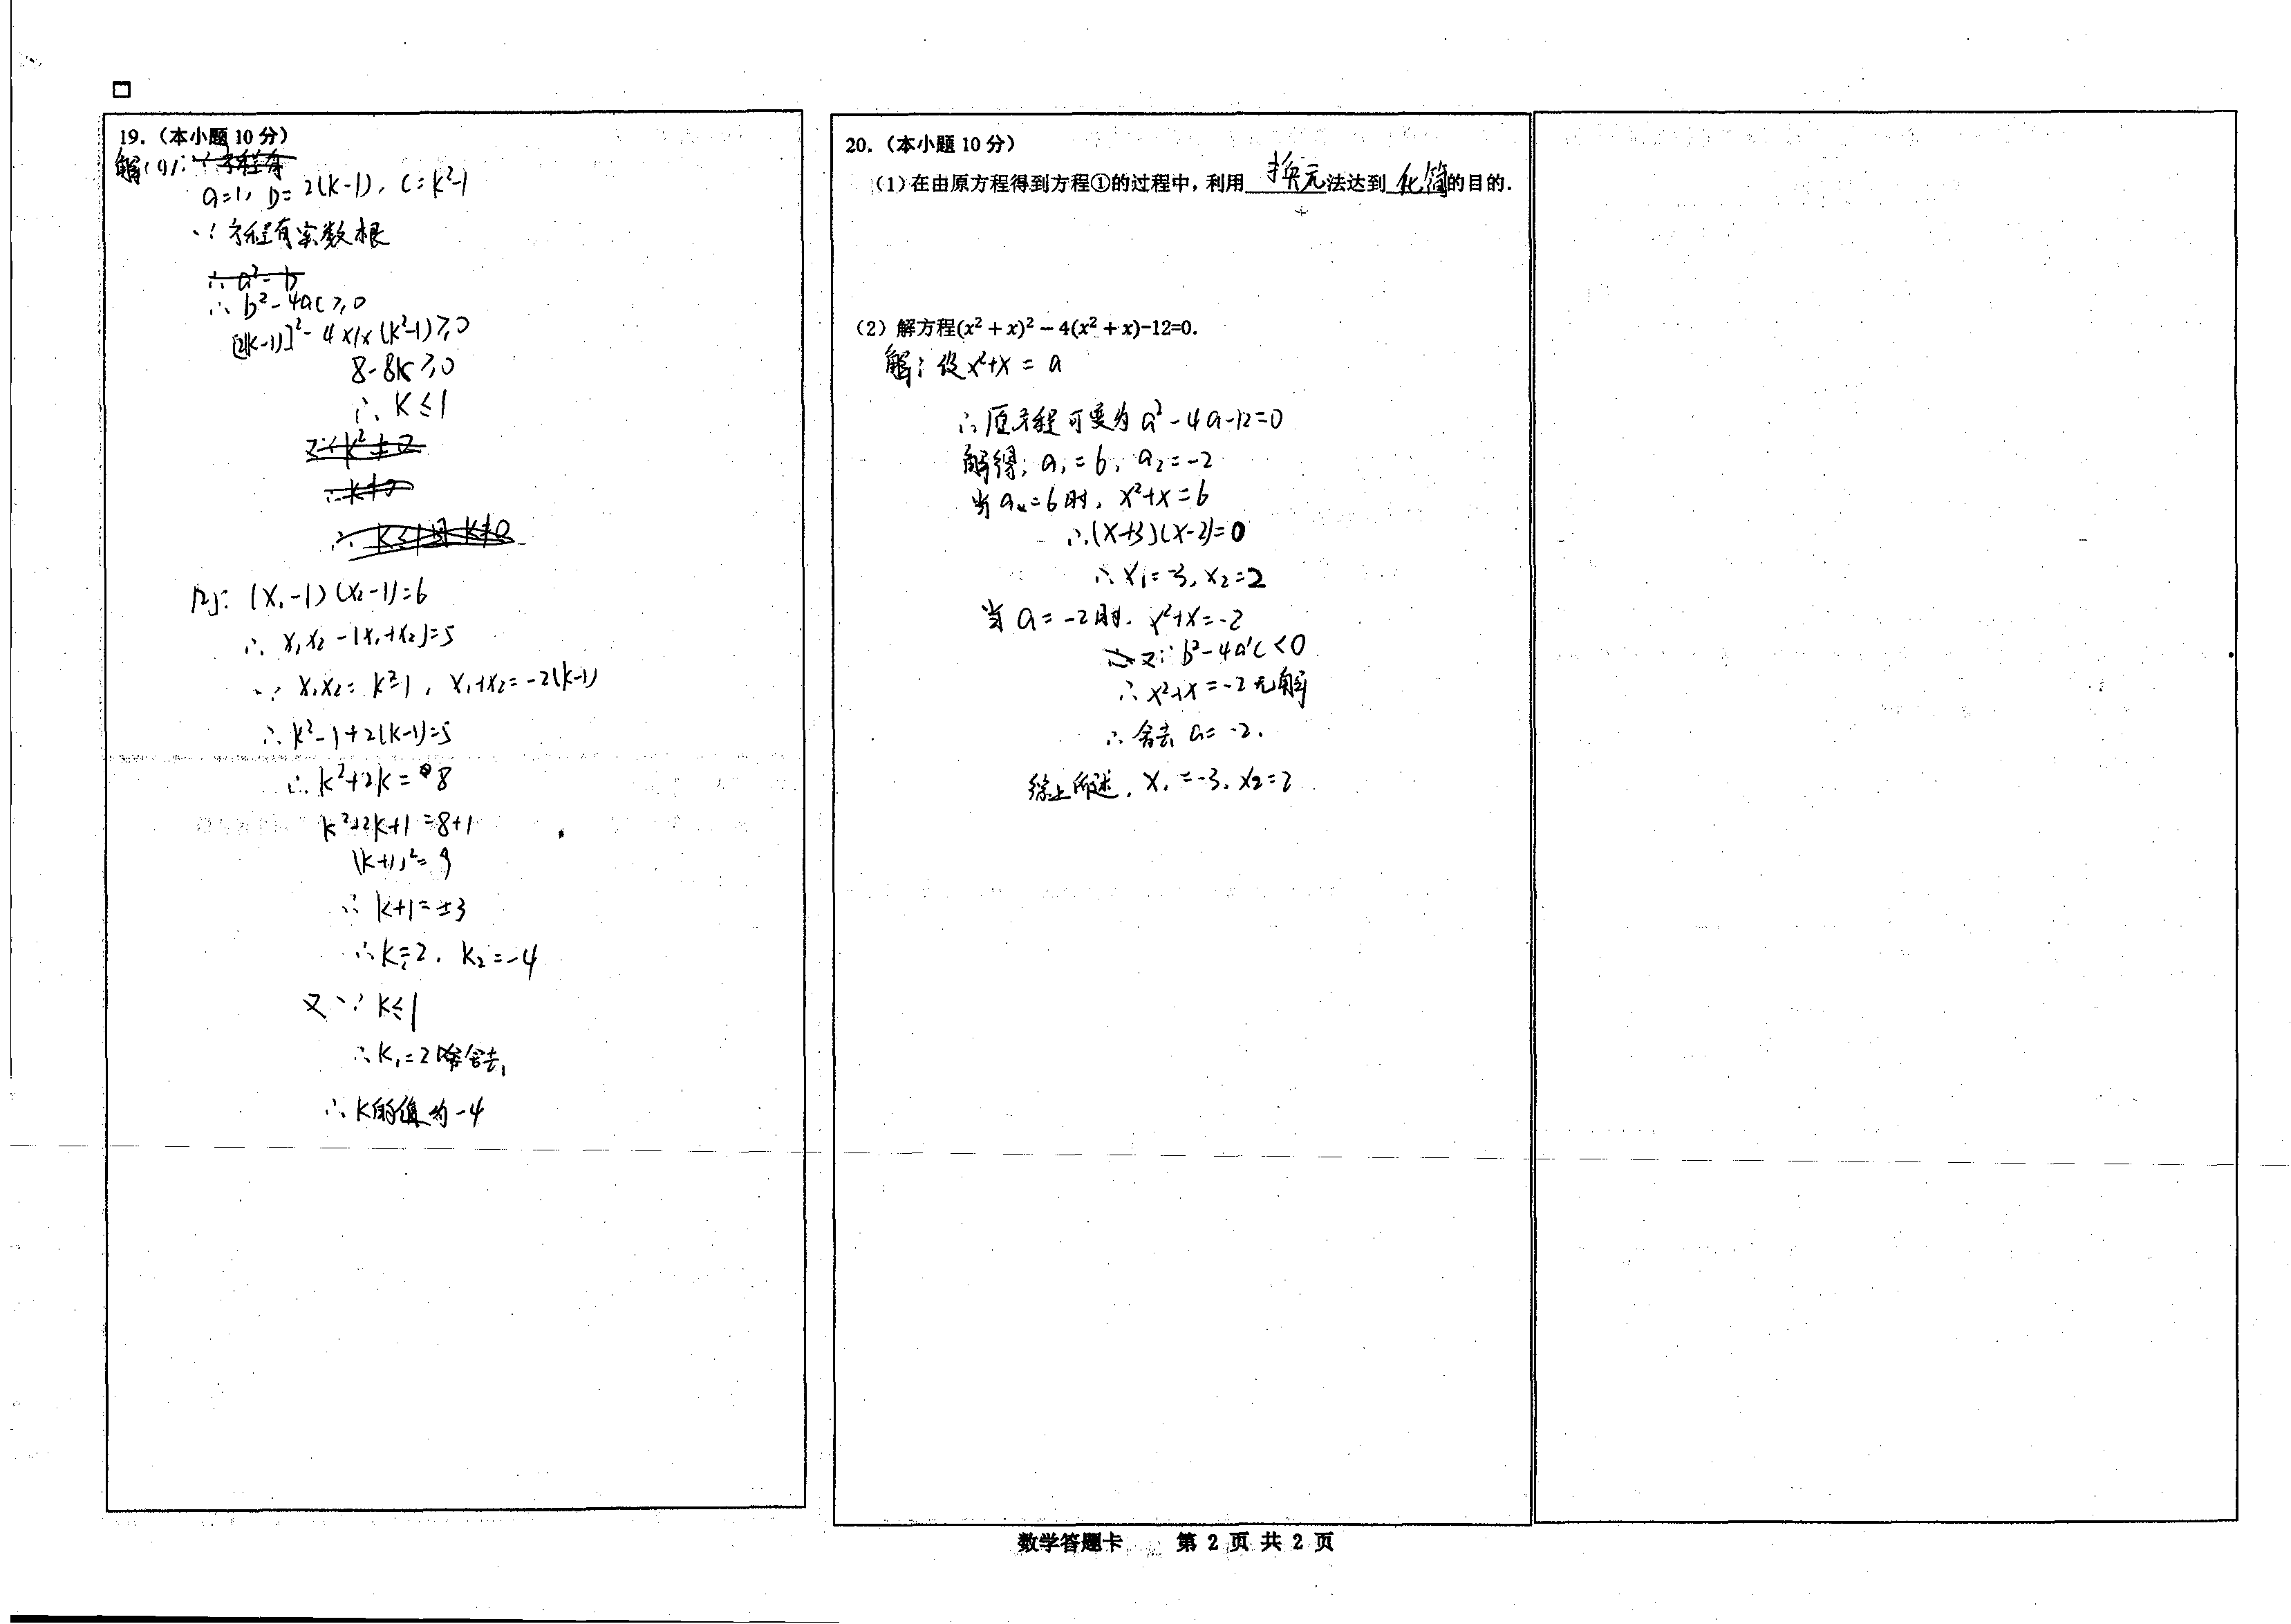 19.（本小题 10 分）
解(1):
a=1, b=2(k-1), c=k²-1
∵方程有实数根
∴a²=b
∴b²-4ac≥0
[2(k-1)]²-4×1×(k²-1)≥0
8-8k≥0
∴k≤1
∴k≠0
∴k≤1且k≠0
(2): (x₁-1)(x₂-1)=6
∴x₁x₂-(x₁+x₂)=5
∵x₁x₂=k²-1, x₁+x₂=-2(k-1)
∴k²-1+2(k-1)=5
∴k²+2k=8
k²+2k+1=8+1
(k+1)²=9
∴k+1=±3
∴k₁=2, k₂=-4
又∵k≤1
∴k₁=2舍去,
∴k的值为-4
20.（本小题 10 分）
（1）在由原方程得到方程①的过程中，利用 换元 法达到 化简 的目的.
（2）解方程(x²+x)²-4(x²+x)-12=0.
解: 设x²+x=a
∴原方程可变为a²-4a-12=0
解得: a₁=6, a₂=-2
当a=6时, x²+x=6
∴(x+3)(x-2)=0
∴x₁=-3, x₂=2
当a=-2时, x²+x=-2
又∵b²-4ac<0
∴x²+x=-2无解
∴舍去a=-2.
综上所述, x₁=-3, x₂=2
数学答题卡 第 2 页 共 2 页